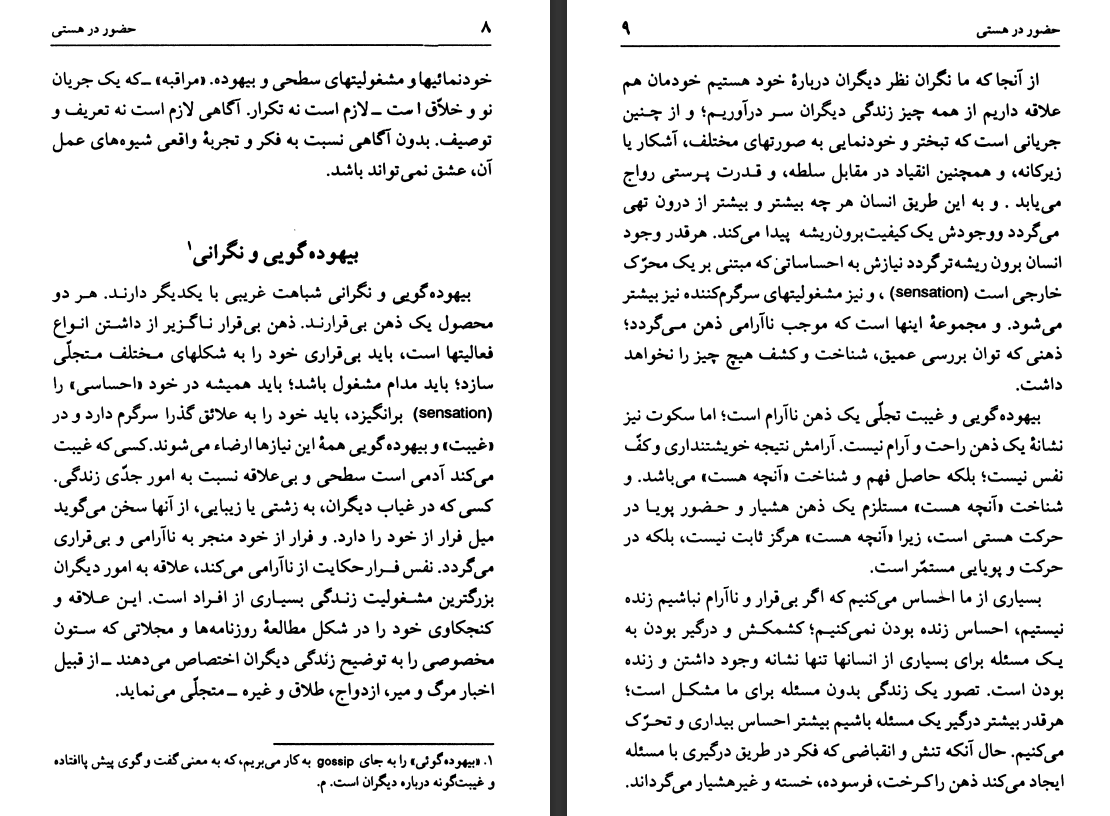 حضور در هستی ۸
خودنمائیها و مشغولیتهای سطحی و بیهوده. «مراقبه» ــکه یک جریان
نو و خلاّق است ــ لازم است نه تکرار. آگاهی لازم است نه تعریف و
توصیف. بدون آگاهی نسبت به فکر و تجربهٔ واقعی شیوه‌های عمل
آن، عشق نمی‌تواند باشد.
بیهوده‌گویی و نگرانی۱
بیهوده‌گویی و نگرانی شباهت غریبی با یکدیگر دارند. هر دو
محصول یک ذهن بی‌قرارند. ذهن بی‌قرار ناگزیر از داشتن انواع
فعالیتها است، باید بی‌قراری خود را به شکلهای مختلف متجلّی
سازد؛ باید مدام مشغول باشد؛ باید همیشه در خود «احساسی» را
(sensation) برانگیزد، باید خود را به علائق گذرا سرگرم دارد و در
«غیبت» و بیهوده‌گویی همهٔ این نیازها ارضاء می‌شوند. کسی که غیبت
می‌کند آدمی است سطحی و بی‌علاقه نسبت به امور جدّی زندگی.
کسی که در غیاب دیگران، به زشتی یا زیبایی، از آنها سخن می‌گوید
میل فرار از خود را دارد. و فرار از خود منجر به ناآرامی و بی‌قراری
می‌گردد. نفس فرار حکایت از ناآرامی می‌کند، علاقه به امور دیگران
بزرگترین مشغولیت زندگی بسیاری از افراد است. این علاقه و
کنجکاوی خود را در شکل مطالعهٔ روزنامه‌ها و مجلاتی که ستون
مخصوصی را به توضیح زندگی دیگران اختصاص می‌دهند ــ از قبیل
اخبار مرگ و میر، ازدواج، طلاق و غیره ــ متجلّی می‌نماید.
۱. «بیهوده‌گوئی» را به جای gossip به کار می‌بریم، که به معنی گفت و گوی پیش پاافتاده
و غیبت‌گونه درباره دیگران است. م.
حضور در هستی ۹
از آنجا که ما نگران نظر دیگران دربارهٔ خود هستیم خودمان هم
علاقه داریم از همه چیز زندگی دیگران سر درآوریم؛ و از چنین
جریانی است که تبختر و خودنمایی به صورتهای مختلف، آشکار یا
زیرکانه، و همچنین انقیاد در مقابل سلطه، و قدرت پرستی رواج
می‌یابد . و به این طریق انسان هر چه بیشتر و بیشتر از درون تهی
می‌گردد ووجودش یک کیفیت برون‌ریشه پیدا می‌کند. هرقدر وجود
انسان برون ریشه‌تر گردد نیازش به احساساتی که مبتنی بر یک محرّک
خارجی است (sensation) ، و نیز مشغولیتهای سرگرم‌کننده نیز بیشتر
می‌شود. و مجموعهٔ اینها است که موجب ناآرامی ذهن می‌گردد؛
ذهنی که توان بررسی عمیق، شناخت و کشف هیچ چیز را نخواهد
داشت.
بیهوده‌گویی و غیبت تجلّی یک ذهن ناآرام است؛ اما سکوت نیز
نشانهٔ یک ذهن راحت و آرام نیست. آرامش نتیجه خویشتنداری و کفّ
نفس نیست؛ بلکه حاصل فهم و شناخت «آنچه هست» می‌باشد. و
شناخت «آنچه هست» مستلزم یک ذهن هشیار و حضور پویا در
حرکت هستی است، زیرا «آنچه هست» هرگز ثابت نیست، بلکه در
حرکت و پویایی مستمّر است.
بسیاری از ما احساس می‌کنیم که اگر بی‌قرار و ناآرام نباشیم زنده
نیستیم، احساس زنده بودن نمی‌کنیم؛ کشمکش و درگیر بودن به
یک مسئله برای بسیاری از انسانها تنها نشانه وجود داشتن و زنده
بودن است. تصور یک زندگی بدون مسئله برای ما مشکل است؛
هرقدر بیشتر درگیر یک مسئله باشیم بیشتر احساس بیداری و تحرّک
می‌کنیم. حال آنکه تنش و انقباضی که فکر در طریق درگیری با مسئله
ایجاد می‌کند ذهن را کرخت، فرسوده، خسته و غیرهشیار می‌گرداند.